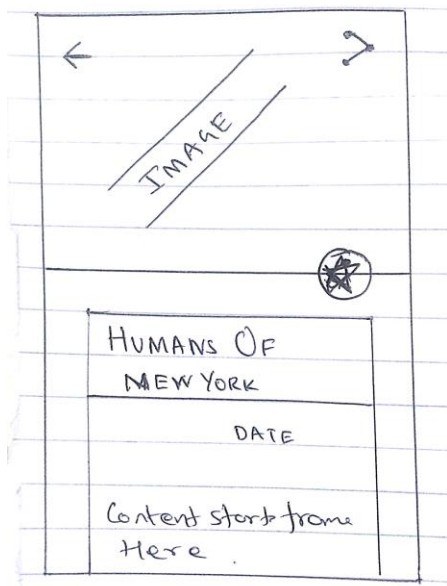 IMAGE
HUMANS OF
MEW YORK
DATE
Content start frome
Here.